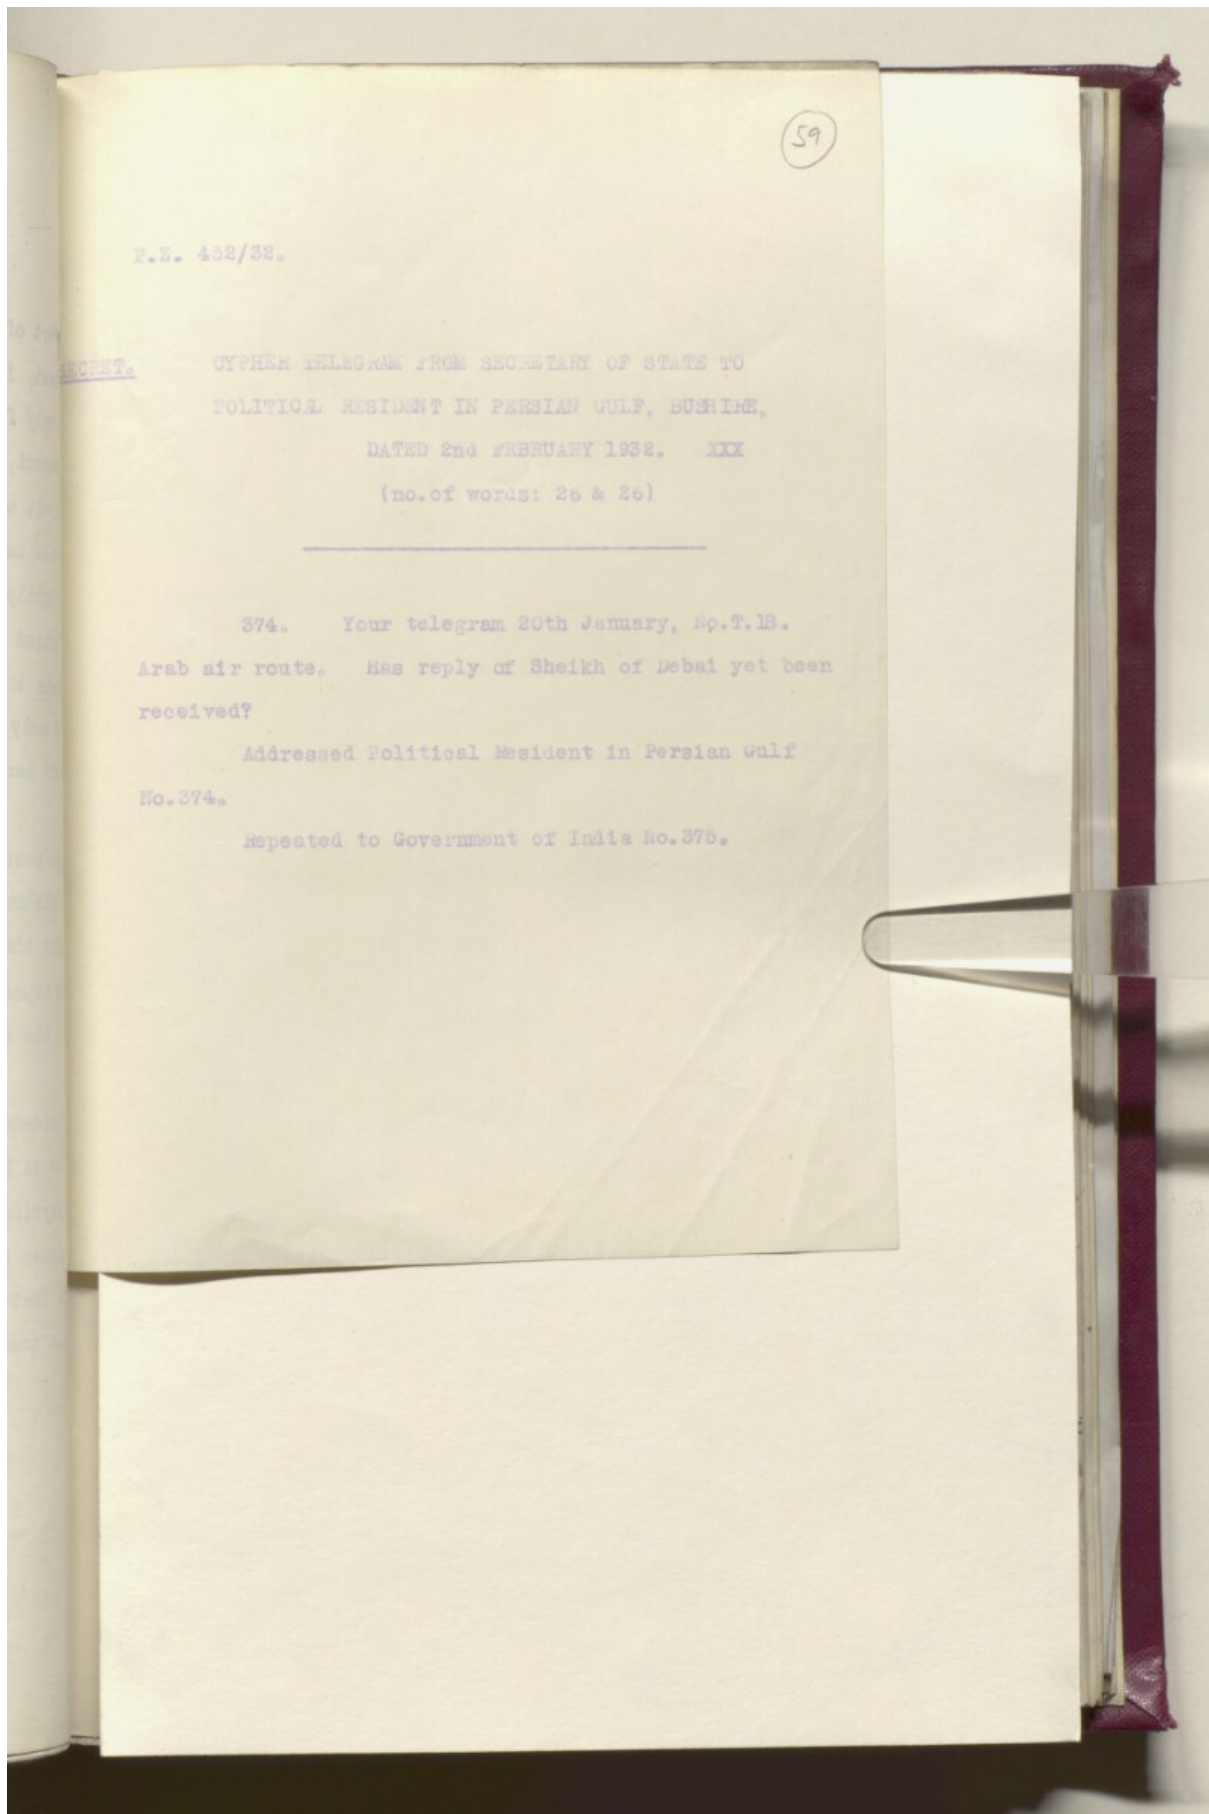 59
P.Z. 432/32.
SECRET. CYPHER TELEGRAM FROM SECRETARY OF STATE TO
POLITICAL RESIDENT IN PERSIAN GULF, BUSHIRE,
DATED 2nd FEBRUARY 1932. XXX
(no.of words: 26 & 26)
374. Your telegram 20th January, No.T.18.
Arab air route. Has reply of Sheikh of Debai yet been
received?
Addressed Political Resident in Persian Gulf
No.374.
Repeated to Government of India No.375.